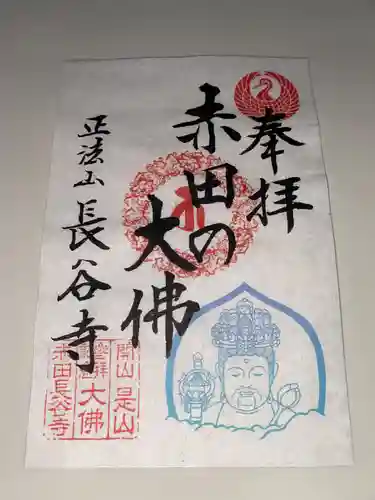 奉拝
赤田の
大佛
正法山
長谷寺
開山是山
参拝
大佛
赤田長谷寺